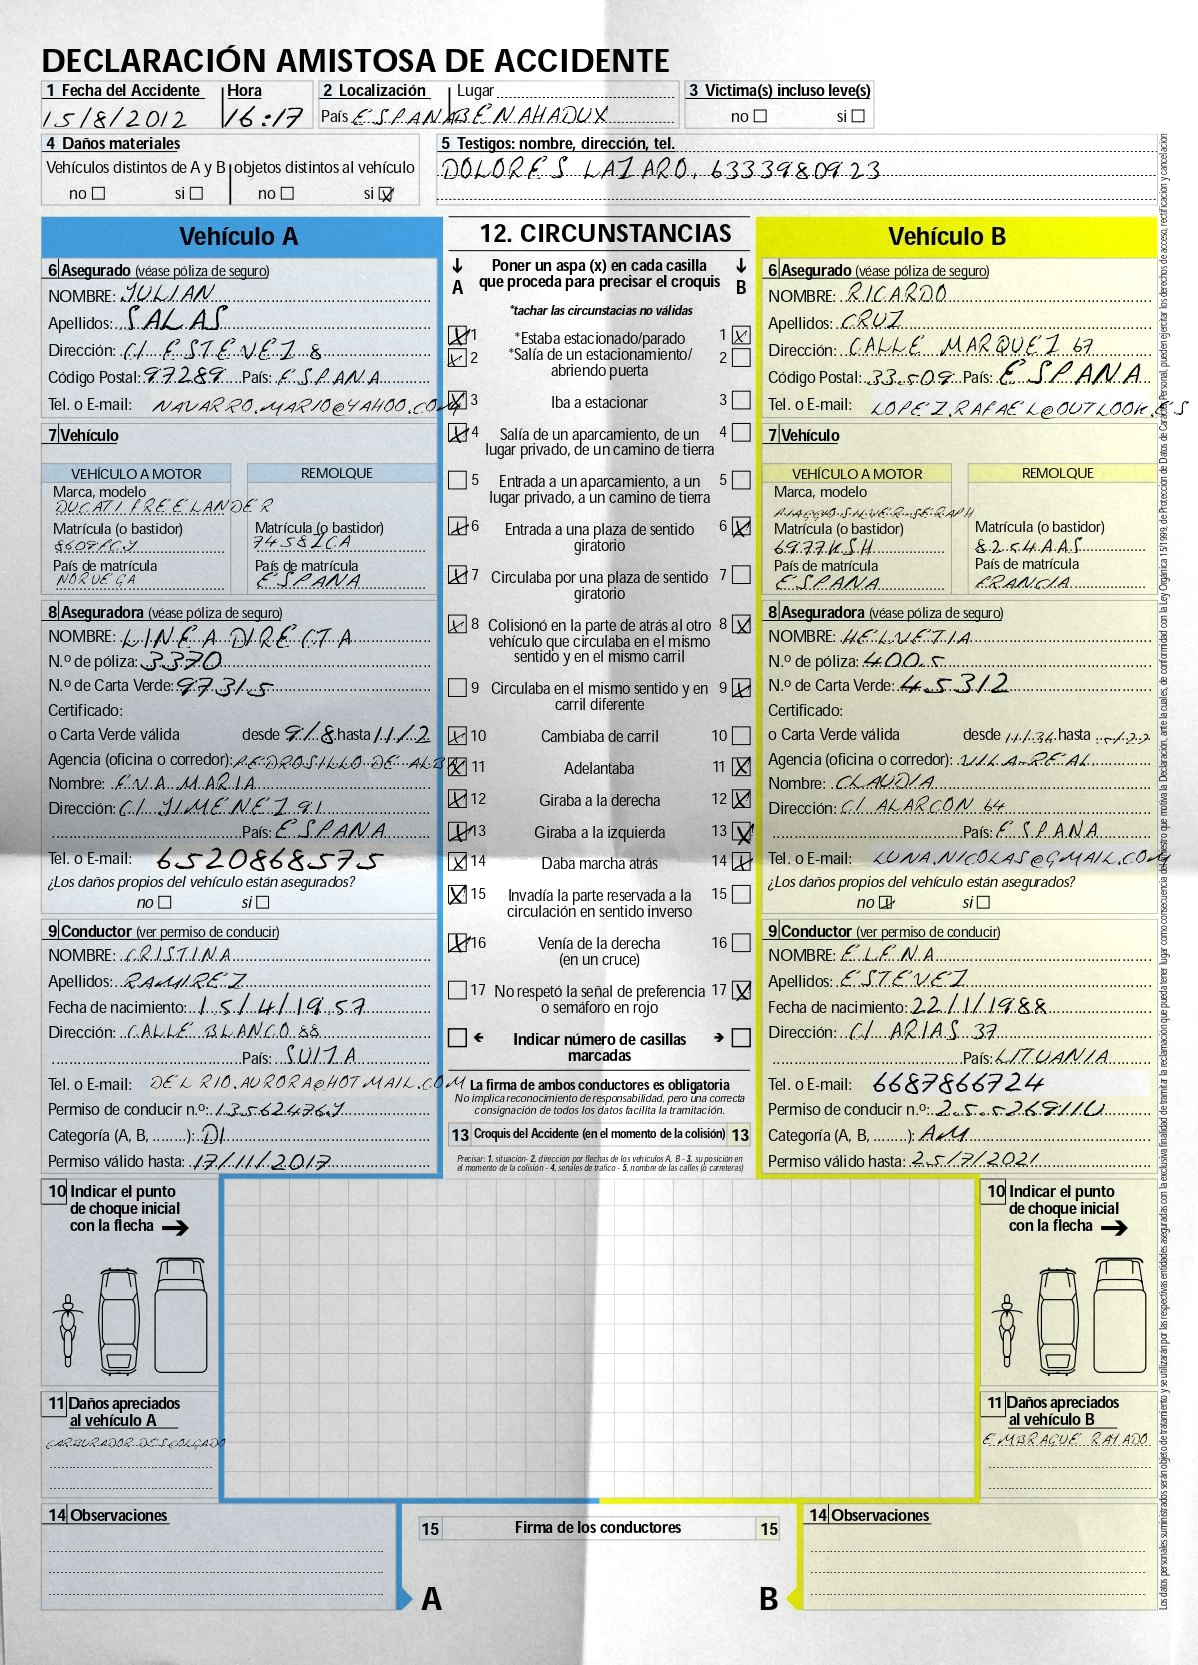 DECLARACIÓN AMISTOSA DE ACCIDENTE
1 Fecha del Accidente Hora 2 Localización Lugar 3 Victima(s) incluso leve(s)
15/8/2012 16:17 País ESPANA BENAHADUX no si
4 Daños materiales 5 Testigos: nombre, dirección, tel.
Vehículos distintos de A y B objetos distintos al vehículo DOLORES LAZARO, 6333980923
no si no si X
Vehículo A
6 Asegurado (véase póliza de seguro)
NOMBRE: JULIAN
Apellidos: SALAS
Dirección: C/ ESTEVEZ 8
Código Postal: 97289 País: ESPANA
Tel. o E-mail: NAVARRO.MARIO@YAHOO.COM
7 Vehículo
VEHÍCULO A MOTOR REMOLQUE
Marca, modelo
DUCATI FREELANDER
Matrícula (o bastidor) Matrícula (o bastidor)
8609PCY 7458ZCA
País de matrícula País de matrícula
NORUEGA ESPANA
8 Aseguradora (véase póliza de seguro)
NOMBRE: LINEA DIRECTA
N.º de póliza: 3370
N.º de Carta Verde: 97315
Certificado:
o Carta Verde válida desde 9/8 hasta 11/2
Agencia (oficina o corredor): PEDROSILLO DE ALBA
Nombre: EVA MARIA
Dirección: C/ JIMENEZ 91
País: ESPANA
Tel. o E-mail: 6520868575
¿Los daños propios del vehículo están asegurados?
no si
9 Conductor (ver permiso de conducir)
NOMBRE: CRISTINA
Apellidos: RAMIREZ
Fecha de nacimiento: 15/4/1957
Dirección: CALLE BLANCO 88
País: SUIZA
Tel. o E-mail: DELRIO.AURORA@HOTMAIL.COM
Permiso de conducir n.º: 13562476J
Categoría (A, B, ........): D1
Permiso válido hasta: 17/11/2017
12. CIRCUNSTANCIAS
A Poner un aspa (x) en cada casilla que proceda para precisar el croquis B
*tachar las circunstacias no válidas
X 1 *Estaba estacionado/parado 1 X
X 2 *Salía de un estacionamiento/ 2
abriendo puerta
X 3 Iba a estacionar 3
X 4 Salía de un aparcamiento, de un 4
lugar privado, de un camino de tierra
5 Entrada a un aparcamiento, a un 5
lugar privado, a un camino de tierra
X 6 Entrada a una plaza de sentido 6 X
giratorio
X 7 Circulaba por una plaza de sentido 7
giratorio
X 8 Colisionó en la parte de atrás al otro 8 X
vehículo que circulaba en el mismo
sentido y en el mismo carril
9 Circulaba en el mismo sentido y en 9 X
carril diferente
X 10 Cambiaba de carril 10
X 11 Adelantaba 11 X
X 12 Giraba a la derecha 12 X
X 13 Giraba a la izquierda 13 X
X 14 Daba marcha atrás 14 X
X 15 Invadía la parte reservada a la 15
circulación en sentido inverso
X 16 Venía de la derecha 16
(en un cruce)
17 No respetó la señal de preferencia 17 X
o semáforo en rojo
Indicar número de casillas
marcadas
La firma de ambos conductores es obligatoria
No implica reconocimiento de responsabilidad, pero una correcta
consignación de todos los datos facilita la tramitación.
13 Croquis del Accidente (en el momento de la colisión) 13
Precisar: 1. situación- 2. dirección por flechas de los vehículos A, B - 3. su posición en
el momento de la colisión - 4. señales de tráfico - 5. nombre de las calles (o carreteras)
Vehículo B
6 Asegurado (véase póliza de seguro)
NOMBRE: RICARDO
Apellidos: CRUZ
Dirección: CALLE MARQUEZ 67
Código Postal: 33509 País: ESPANA
Tel. o E-mail: LOPEZ.RAFAEL@OUTLOOK.ES
7 Vehículo
VEHÍCULO A MOTOR REMOLQUE
Marca, modelo
PIAGGIO SILVER-SERAPH
Matrícula (o bastidor) Matrícula (o bastidor)
6977KSH 8254AAS
País de matrícula País de matrícula
ESPANA FRANCIA
8 Aseguradora (véase póliza de seguro)
NOMBRE: HELVETIA
N.º de póliza: 4005
N.º de Carta Verde: 45312
Certificado:
o Carta Verde válida desde hasta
Agencia (oficina o corredor): VILA-REAL
Nombre: CLAUDIA
Dirección: C/ ALARCON 64
País: ESPANA
Tel. o E-mail: LUNA.NICOLAS@GMAIL.COM
¿Los daños propios del vehículo están asegurados?
no X si
9 Conductor (ver permiso de conducir)
NOMBRE: ELENA
Apellidos: ESTEVEZ
Fecha de nacimiento: 22/1/1988
Dirección: C/ ARIAS 37
País: LITUANIA
Tel. o E-mail: 6687866724
Permiso de conducir n.º: 25526911U
Categoría (A, B, ........): AM
Permiso válido hasta: 25/7/2021
10 Indicar el punto
de choque inicial
con la flecha
11 Daños apreciados
al vehículo A
CARBURADOR DESCOLGADO
10 Indicar el punto
de choque inicial
con la flecha
11 Daños apreciados
al vehículo B
EMBRAGUE RAYADO
14 Observaciones
15 Firma de los conductores 15
A B
14 Observaciones